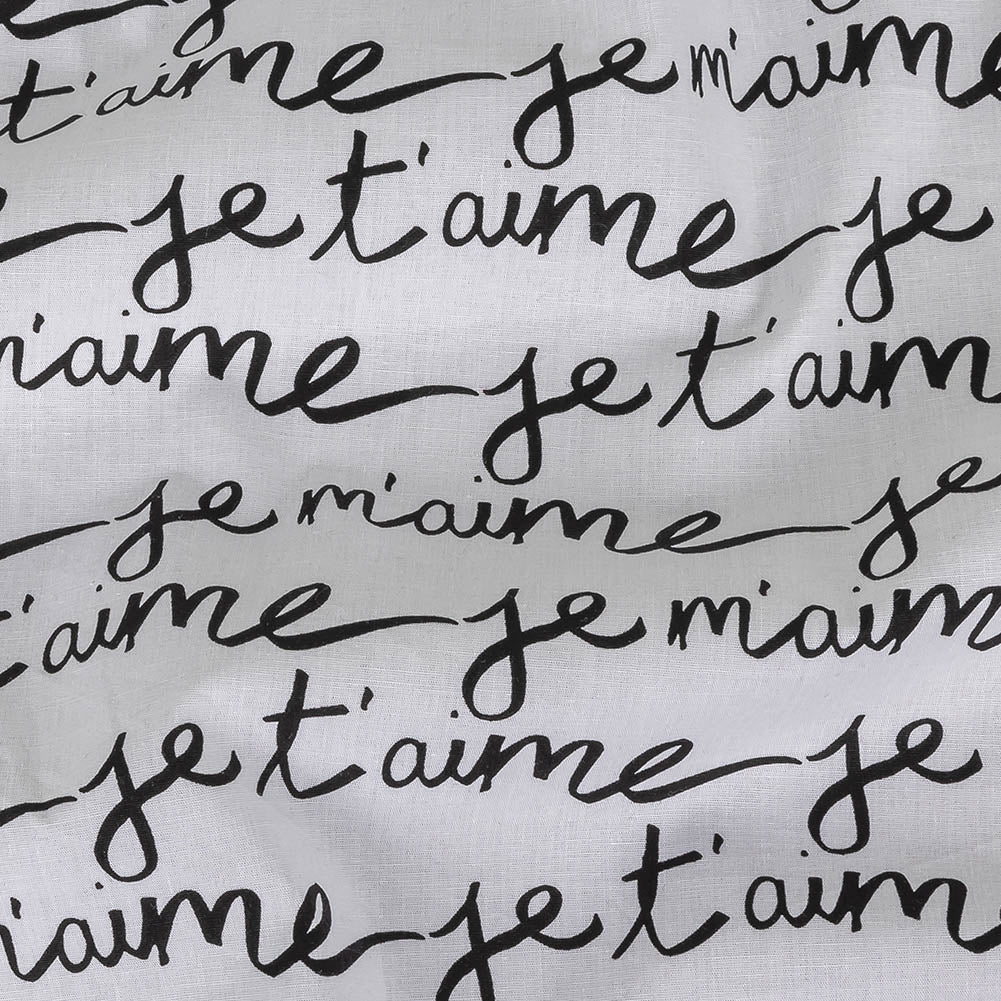 t'aime je m'aime
je t'aime je
m'aime je t'aim
je m'aime je
t'aime je m'aim
je t'aime je
'aime je t'aim